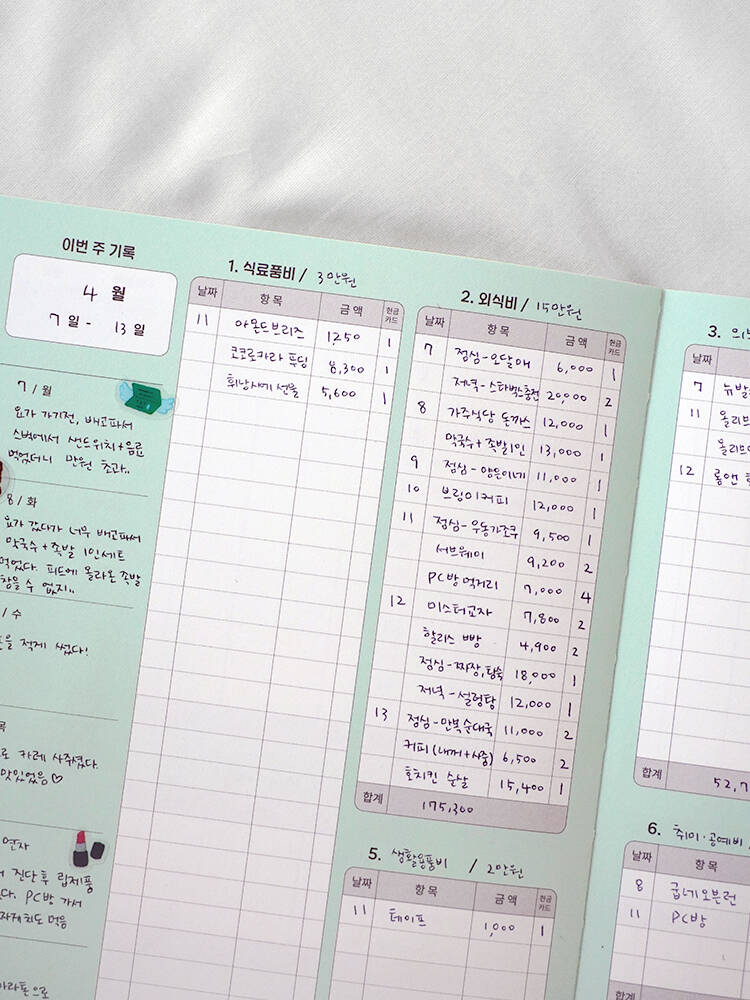 이번 주 기록
4 월
7 일 - 13 일
7 / 월
요가 가기전, 배고파서
스벅에서 샌드위치+음료
먹었더니 만원 초과..
8 / 화
요가 갔다가 너무 배고파서
막국수+족발 1인세트
먹었다. 피드에 올라온 족발
참을 수 없지..
/ 수
적게 썼다!
카레 사주셨다.
맛있었음♡
진단 후 립제품
PC방 가서
먹음
1. 식료품비 / 3만원
날짜 항목 금액 현금 카드
11 아몬드브리즈 1,250 1
코코로카라 푸딩 8,300 1
휘낭시에 선물 5,600 1
2. 외식비 / 15만원
날짜 항목 금액 현금 카드
7 점심-오달애 6,000 1
저녁-스타벅스충전 20,000 2
8 가주식당 돈까스 12,000 1
막국수+족발1인 13,000 1
9 점심-양은이네 11,000 1
10 브링이커피 12,000 1
11 점심-우동가조쿠 9,500 1
서브웨이 9,200 2
PC방 먹거리 7,000 4
12 미스터교자 7,800 2
할리스 빵 4,900 2
점심-짜장,탕숙 18,000 1
저녁-설렁탕 12,000 1
13 점심-만복순대국 11,000 2
커피(내꺼+사중) 6,500 2
호치킨 순살 15,400 1
합계 175,300
5. 생활용품비 / 2만원
날짜 항목 금액 현금 카드
11 테이프 1,000 1
3.
날짜
7
11 올리브
올리브
12
합계 52,7
6. 취미·공예비
날짜 항목
8 굽네오븐런
11 PC방
합계